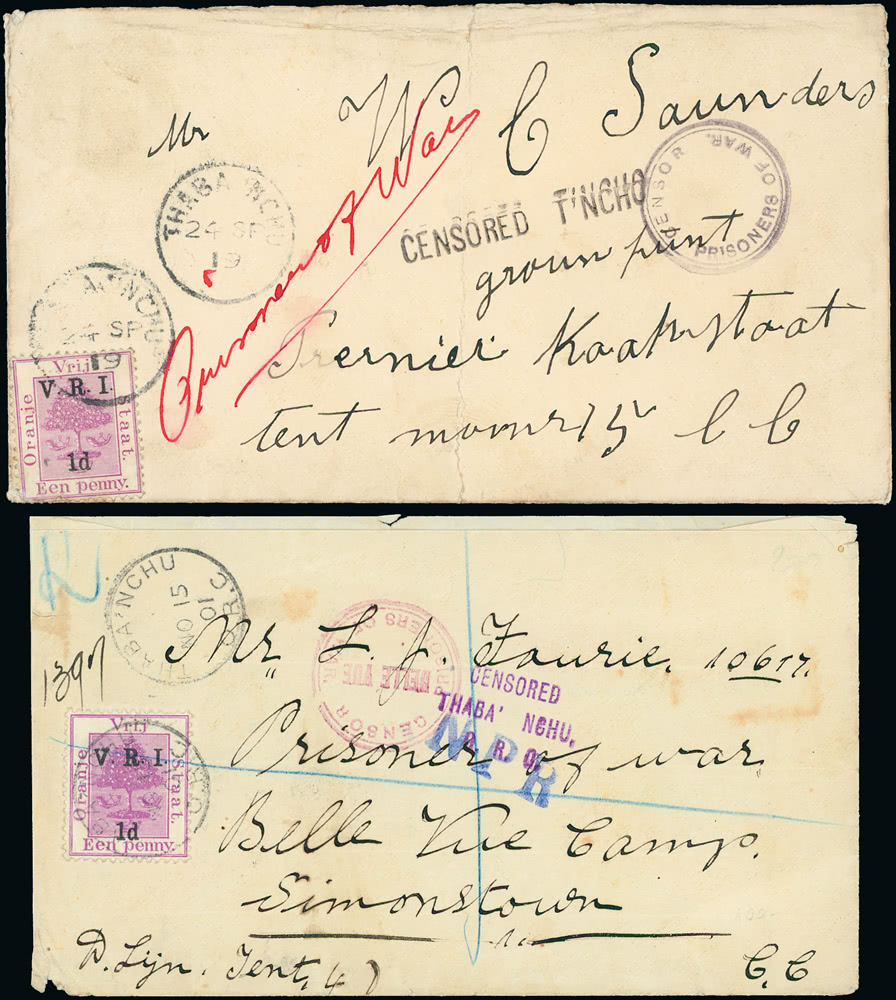 Mr W C Saunders
THABA 'NCHU
24 SP
19
Prisoner of War
CENSORED T'NCHO
CENSOR PRISONERS OF WAR.
groun punt
24 SP
19
Kaakstaat
tent 15 C C
Vrij
Oranje
Staat.
V. R. I.
1d
Een penny.
THABA'NCHU
NO 15
01
1397
Mr L. J. Fourie. 10617.
CENSOR
BELLE VUE
CENSORED
THABA' NCHU,
O. R. C.
N P R
Prisoner of war
Vrij
Oranje
Staat.
V. R. I.
1d
Een penny.
Belle Vue Camp.
Simonstown
D. Lijn. Tent, 4
C. C